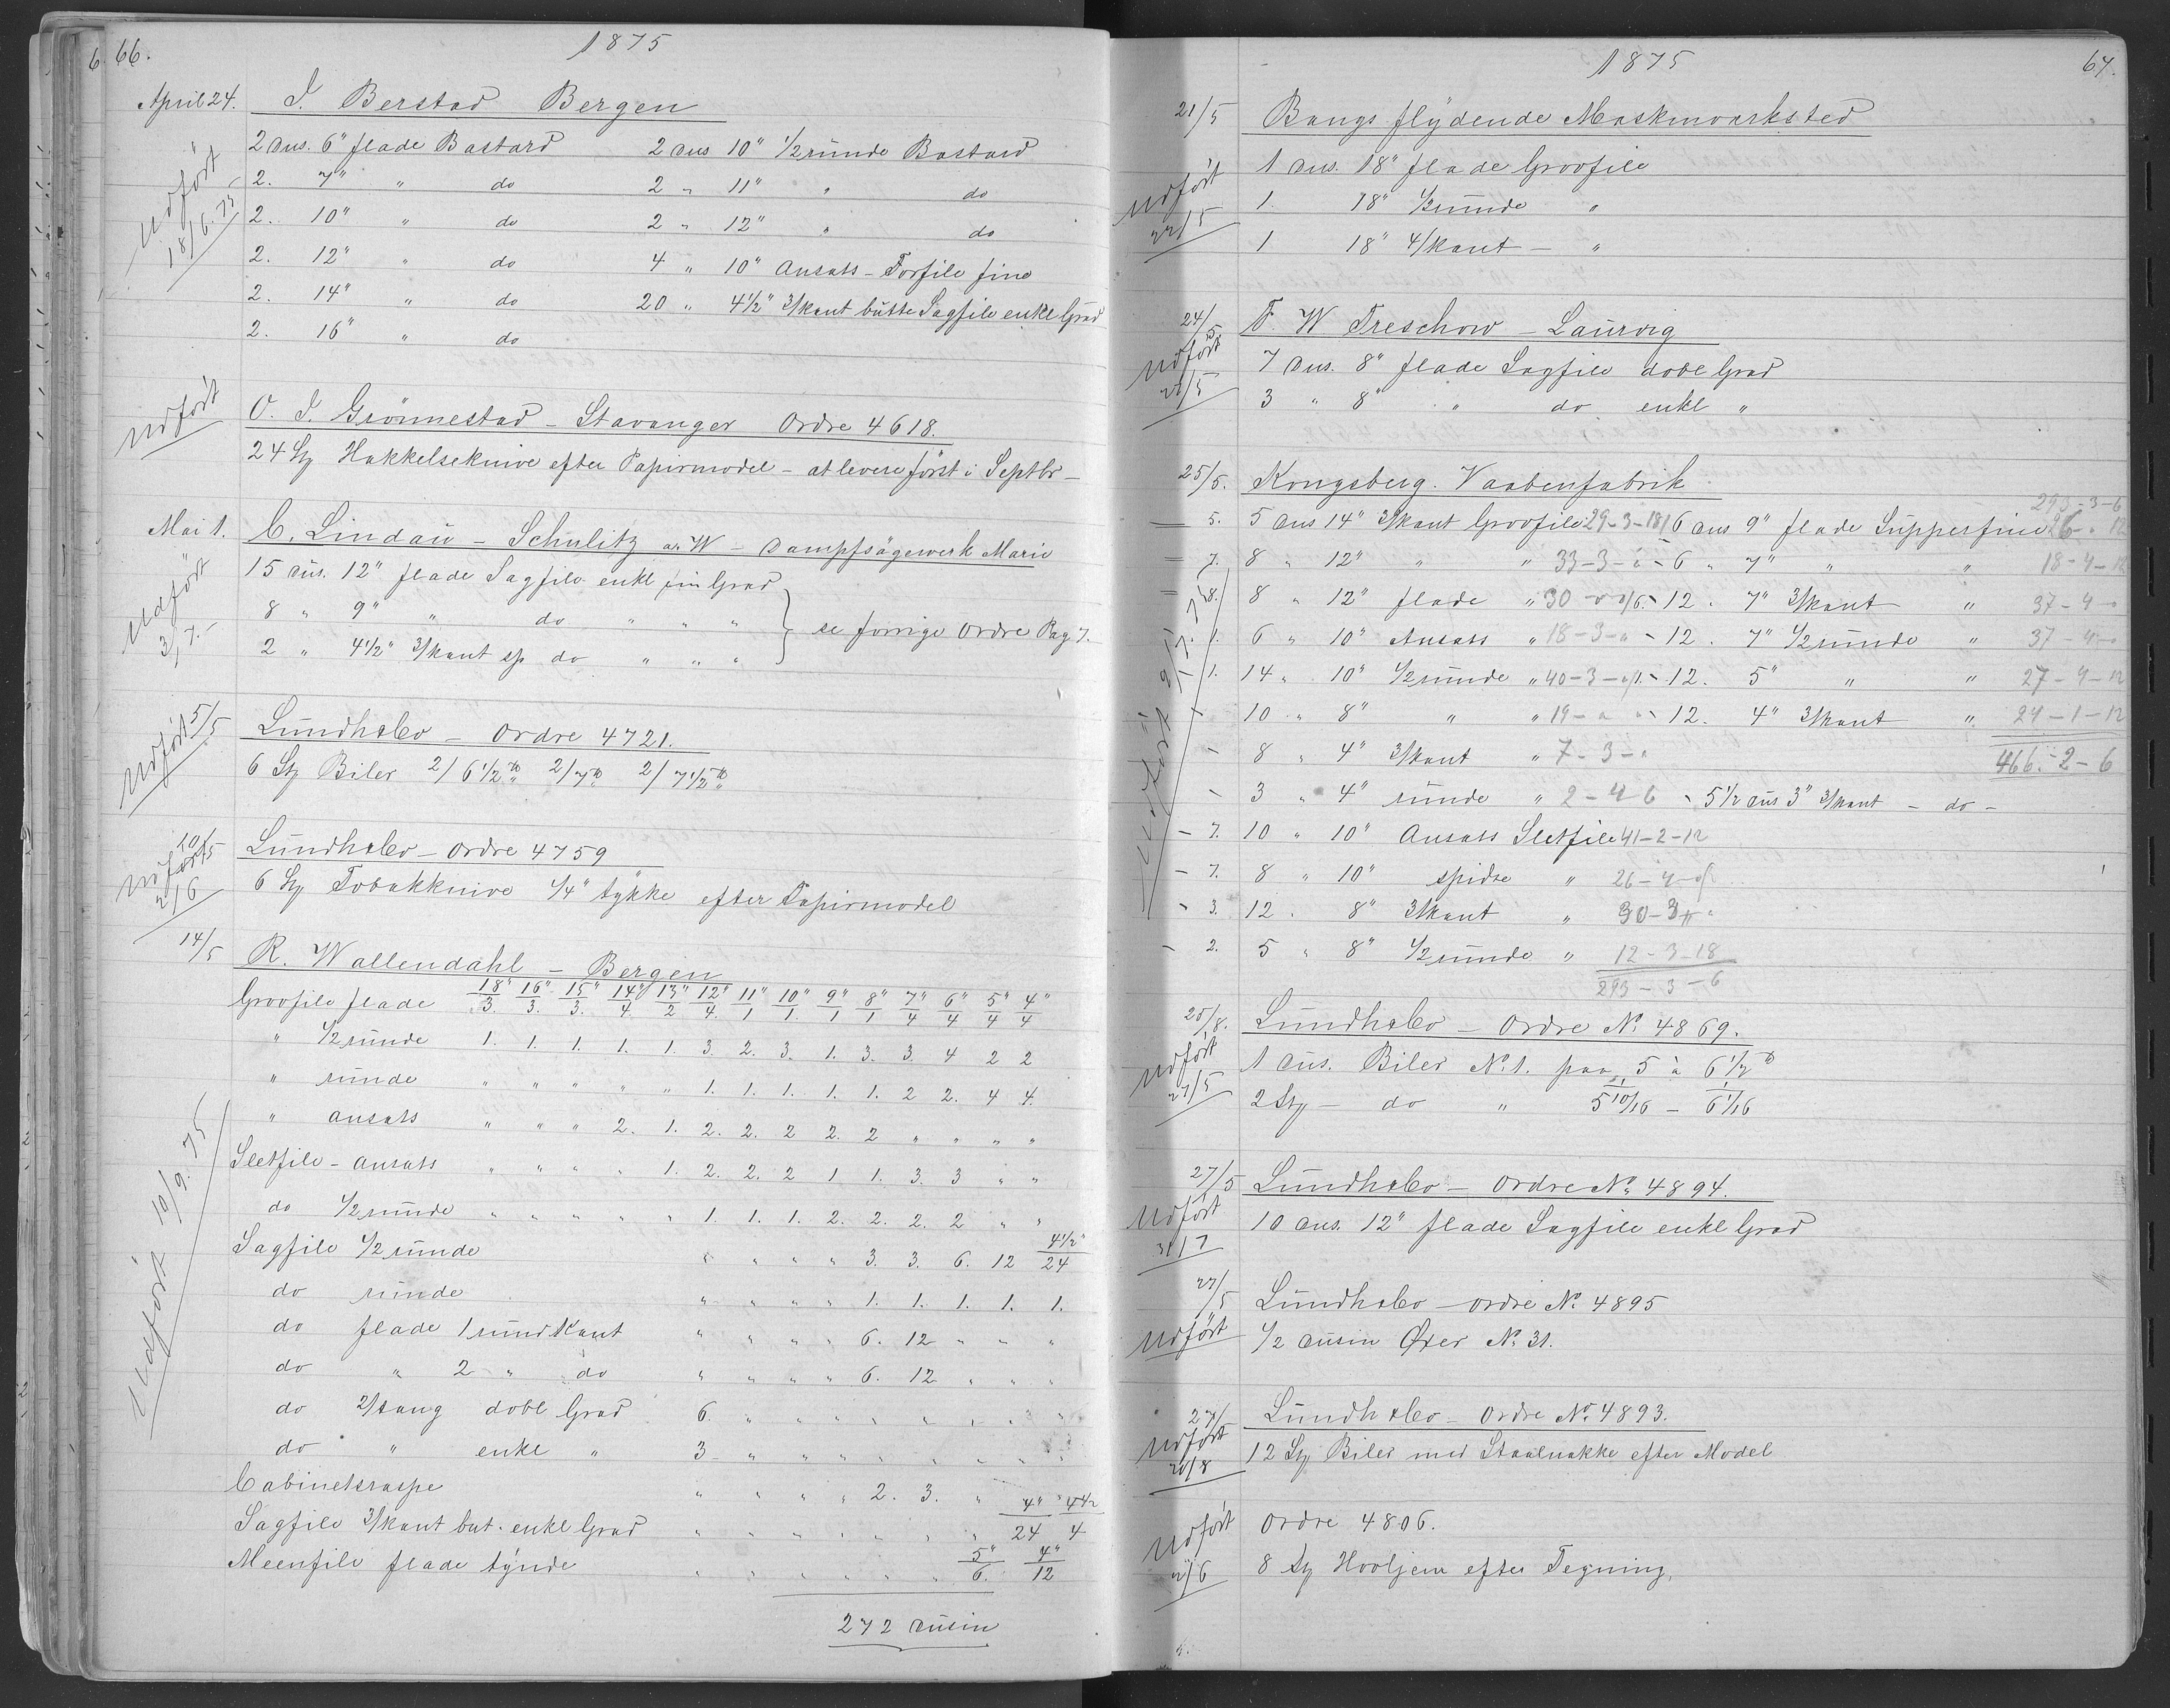 66.
1875
April 24. I. Berstad Bergen
2 Dus. 6" flade Bastard 2 Dus 10" 1/2 runde Bastard
2. 7" " do 2 " 11" " do
2. 10" " do 2 " 12" " do
2. 12" " do 4 " 10" Ansats - Forfile fine
2. 14" " do 20 " 4 1/2" 3/kant butte Sagfile enkl Grad
2. 16" " do
Udført 18/6. 75
Udført
O. I. Grönnestad - Stavanger Ordre 4618.
24 Stz Hakkelseknive efter Papirmodel - at levere först i Septbr -
Mai 1. C. Lindau - Schulitz a. W - Dampfsägewerk Marie
15 Dus. 12" flade Sagfile enkl fin Grad
8 " 9" " do " " "
2 " 4 1/2" 3/kant sp do " " "
se forrige Ordre Pag 7.
Udført 3/7. -
5/5 Lundhsbo - Ordre 4721.
Udført
6 Stz Biler 2/6 1/2 ₶ 2/7 ₶ 2/7 1/2 ₶
10/5 Lundhsbo - Ordre 4759
Udført 2/6
6 Stz Tobakknive 1/4" tykke efter Papirmodel
14/5 R. Wallendahl - Bergen
Groofile flade 18"/3. 16"/3. 15"/3. 14"/4. 13"/2 12"/4. 11"/1 10"/1. 9"/1 8"/1 7"/4 6"/4 5"/4 4"/4
" 1/2 runde 1. 1. 1. 1. 1. 3. 2. 3. 1. 3. 3. 4 2 2
" runde " " " " " 1. 1. 1. 1. 1. 2 2. 4 4.
" ansats " " " 2. 1. 2. 2. 2 2. 2 " " " "
Sletfile - ansats " " " " 1. 2. 2. 2 1 1. 3. 3 " "
do 1/2 runde " " " " " 1. 1. 1. 2. 2. 2. 2 " "
Sagfile 1/2 runde " " " " 3. 3. 6. 12 4 1/2"/24
do runde " " " " 1. 1. 1. 1. 1.
do flade 1 rund Kant " " " " 6. 12 " " "
do " 2 " do " " " " 6. 12 " " "
do 2/tang dobl Grad 6. " " " " " " " "
do " enkl " 3 " " " " " " " "
Cabinetsraspe " " " " 2. 3. "
Sagfile 3/kant but. enkl Grad " " " " " " " 4"/24 4 1/2/4
Meenfile flade tynde " " " " " " 5"/6. 4"/12
272 Dusin
Udført 10/9. 75
1875
67.
21/5 Bangs flydende Maskinværksted
1 Dus. 18" flade Groofile
1. 18" 1/2 runde "
1 18" 4/kant - "
Udført 22/5
24/5 F. W Treschow - Laurvig
7 Dus. 8" flade Sagfile dobl Grad
3 " 8" " do enkl "
Udført
25/5. Kongsberg. Vaabenfabrik
293-3-6
5. 5 Dus 14" 3/kant Groofile 29-3-18 6 Dus 9" flade Supperfine 26-"-12
7. 8 " 12" " " 33-3-" 6 " 7" " " 18-4-12
8. 8 " 12" flade " 30 12 . 7" 3/kant " 37-4-"
1. 6 " 10" Ansats " 18-3-" 12 . 7" 1/2 runde " 37-4-"
1. 14 " 10" 1/2 runde " 40-3-" 12. 5" " " 27-4-12
10 " 8" " " 19-"-" 12. 4" 3/kant " 24-1-12
8 " 4" 3/kant " 7-3-" 466.-2-6
3 " 4" runde " 2-4-6 5 1/2 Dus 3" 3/kant - do -
7. 10 " 10" Ansats Sletfile 41-2-12
7. 8 " 10" spidse " 26-4-
3. 12 . 8" 3/kant " 30-3-"
2. 5 " 8" 1/2 runde " 12-3-18
293-3-6
Udført
Lundhsbo - Ordre No 4869.
1 Dus. Biler No 1. paa 5 à 6 1/2 ₶
2 Stz - do " 5 10/16 - 6 1/16
Udført 27/5
27/5 Lundhsbo - Ordre No 4894.
10 Dus. 12" flade Sagfile enkl Grad
Udført
27/5 Lundhsbo - Ordre No 4895
1/2 Dusin Øxer No 31.
Udført
27/ Lundhsbo - Ordre No. 4893.
12 Stz Biler med Staalnakke efter Model
Udført 20/8
Ordre 4806.
8 Stz Hooljern efter Tegning.
Udført